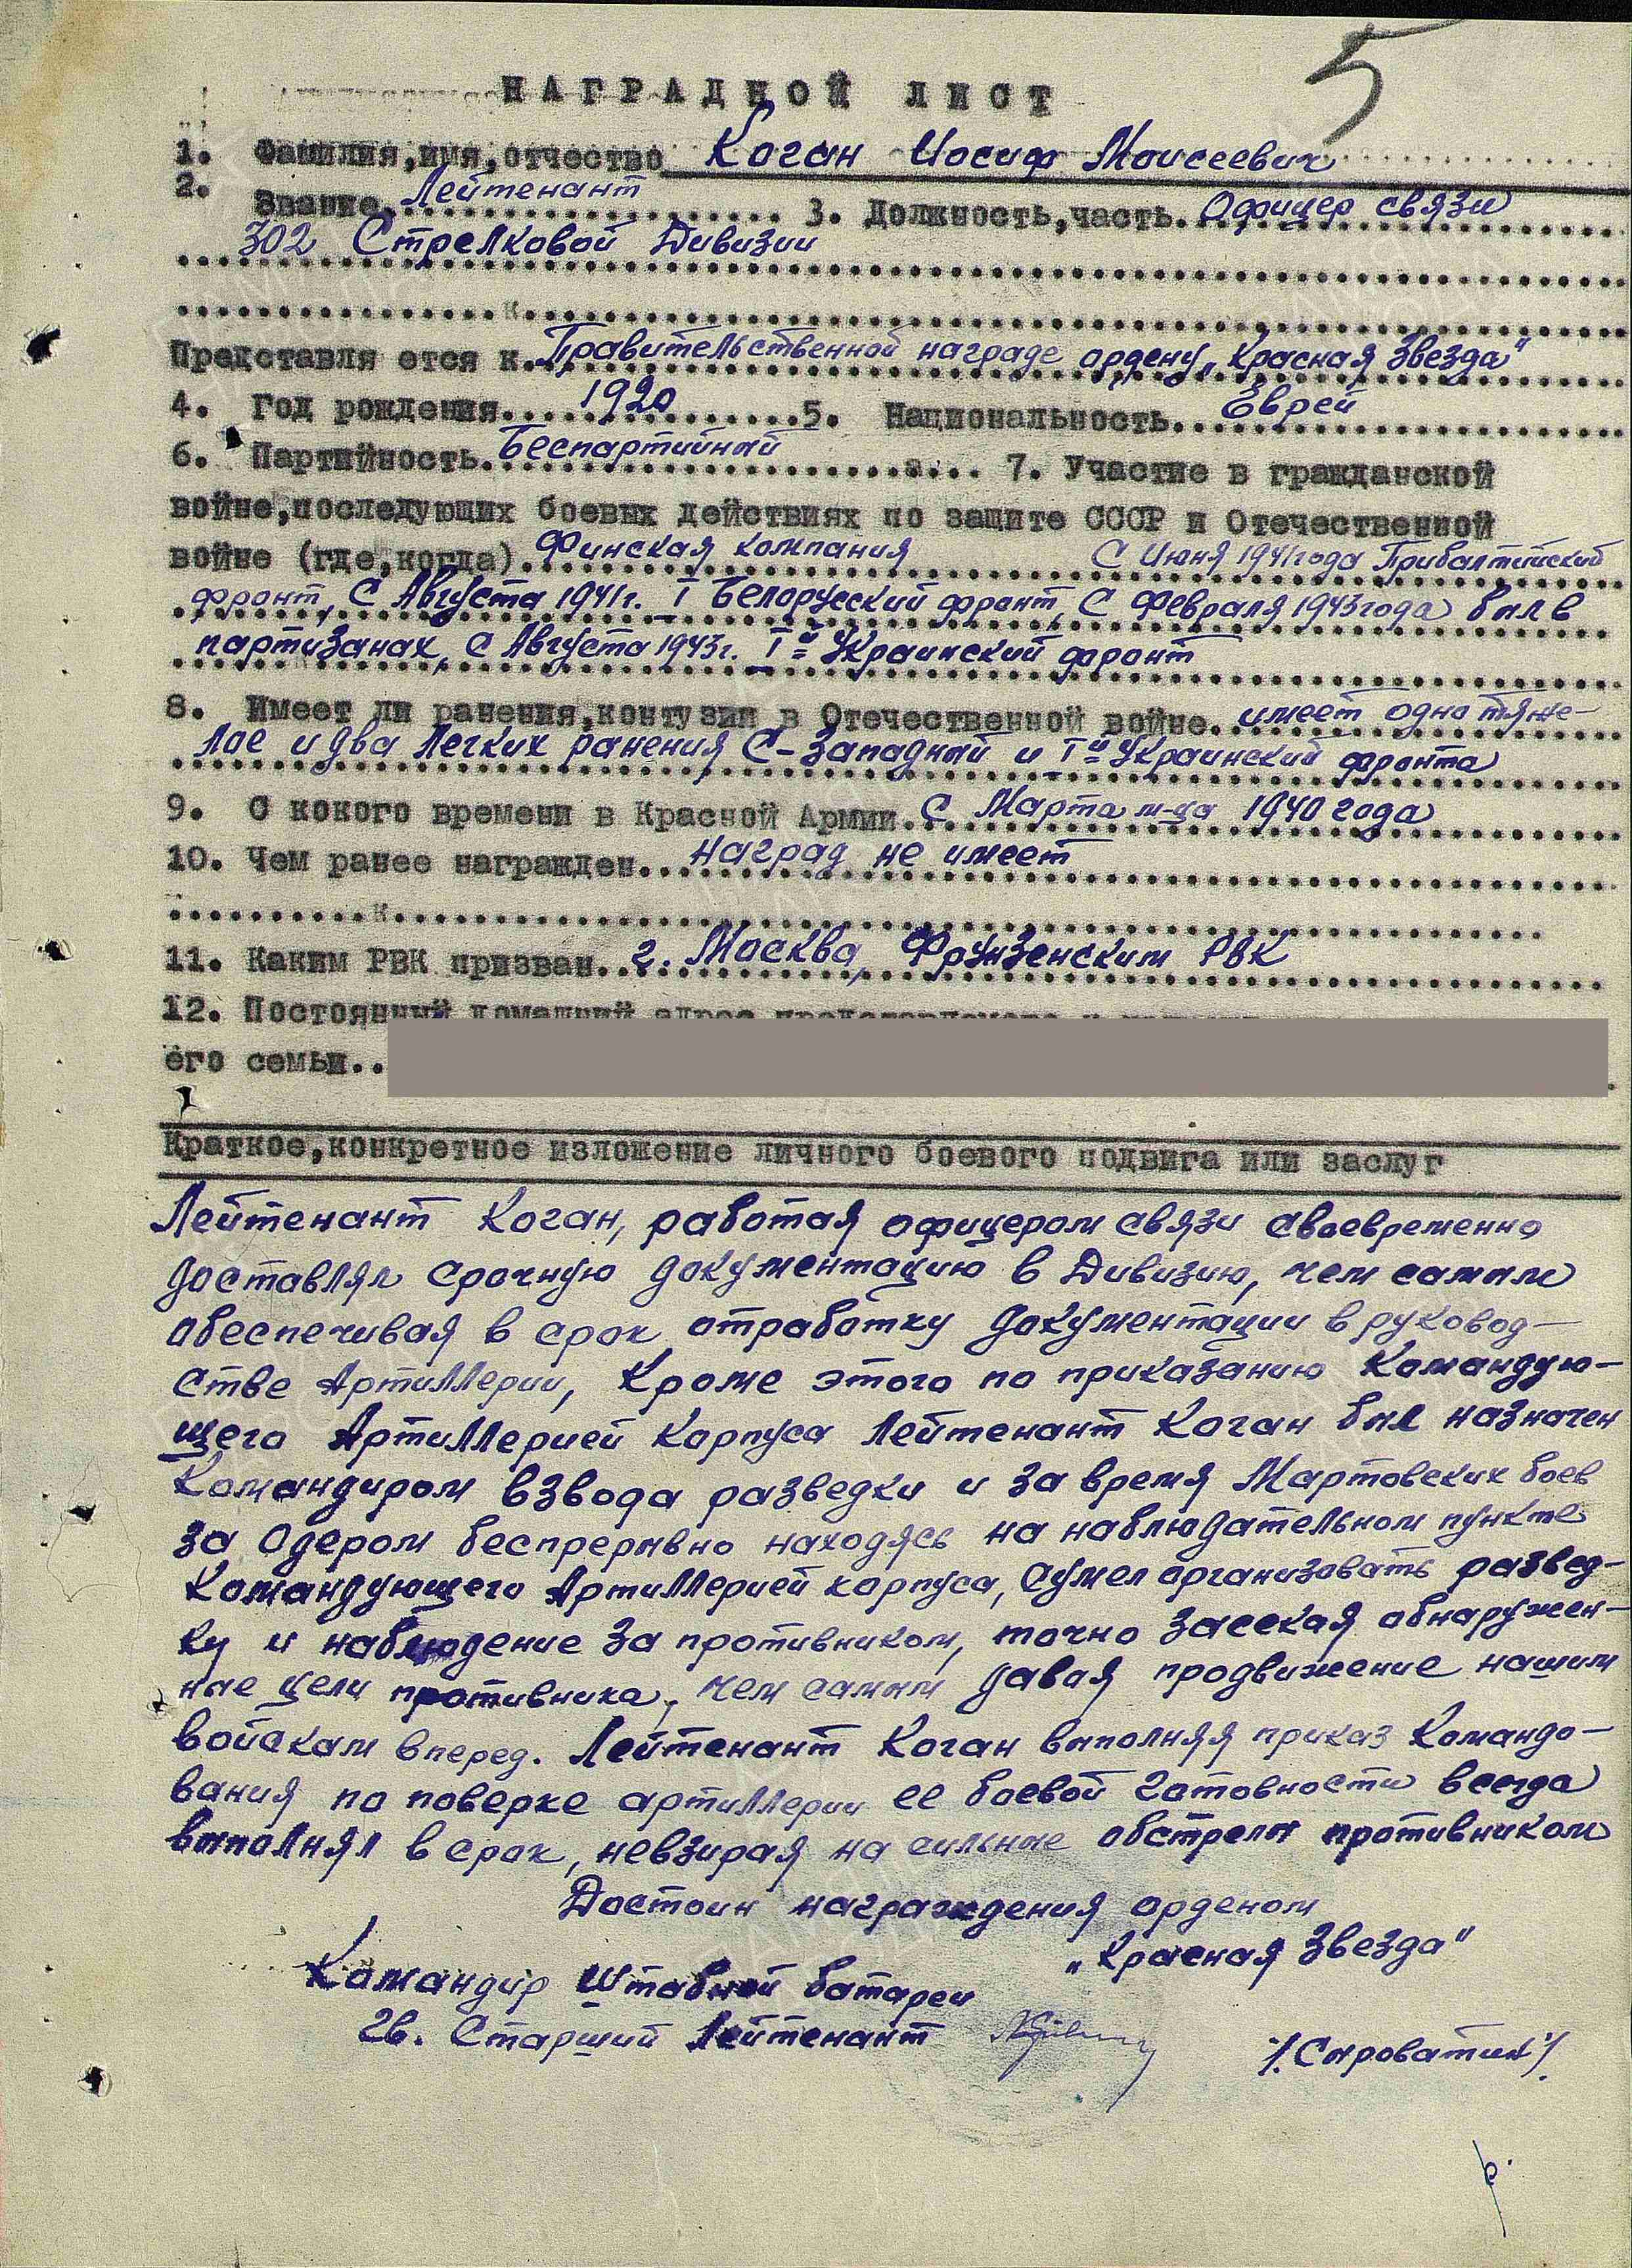 5
НАГРАДНОЙ ЛИСТ
1. Фамилия,имя,отчество Коган Иосиф Моисеевич
2. Звание Лейтенант 3. Должность,часть. Офицер связи
302 Стрелковой Дивизии
Представля ется к. Правительственной награде ордену „Красная Звезда"
4. Год рождения 1920 5. Национальность Еврей
6. Партийность. Беспартийный 7. Участие в гражданской
войне,последующих боевых действиях по защите СССР и Отечественной
войне (где,когда) Финская компания С Июня 1941 года Прибалтийский
фронт, С Августа 1941г. I Белорусский фронт, С Февраля 1943 года был в
партизанах, С Августа 1943г. I й Украинский фронт
8. Имеет ли ранения,контузии в Отечественной войне. имеет одно тяже-
лое и два легких ранения С-Западный и I й Украинский фронта
9. С кокого времени в Красной Армии. С Марта м-ца 1940 года
10. Чем ранее награжден. Наград не имеет
11. Каким РВК призван. г. Москва, Фрунзенским РВК
12. Постоянный домашний адрес
его семьи..
Краткое,конкретное изложение личного боевого подвига или заслуг
Лейтенант Коган, работая офицером связи своевременно
доставлял срочную документацию в Дивизию, чем самым
обеспечивая в срок отработку документации в руковод-
стве Артиллерии, Кроме этого по приказанию Командую-
щего Артиллерией Корпуса Лейтенант Коган был назначен
Командиром взвода разведки и за время Мартовских боев
за Одером беспрерывно находясь на наблюдательном пункте
Командующего Артиллерией корпуса, сумел организовать развед-
ку и наблюдение за противником, точно засекая обнаружен-
ные цели противника, чем самым давая продвижение нашим
войскам вперед. Лейтенант Коган выполняя приказ Командо-
вания по поверке артиллерии ее боевой готовности всегда
выполнял в срок, невзирая на сильные обстрелы противником
Достоин награждения орденом
„Красная Звезда"
Командир Штабной батареи
Гв. Старший Лейтенант /.Сыроватин/.